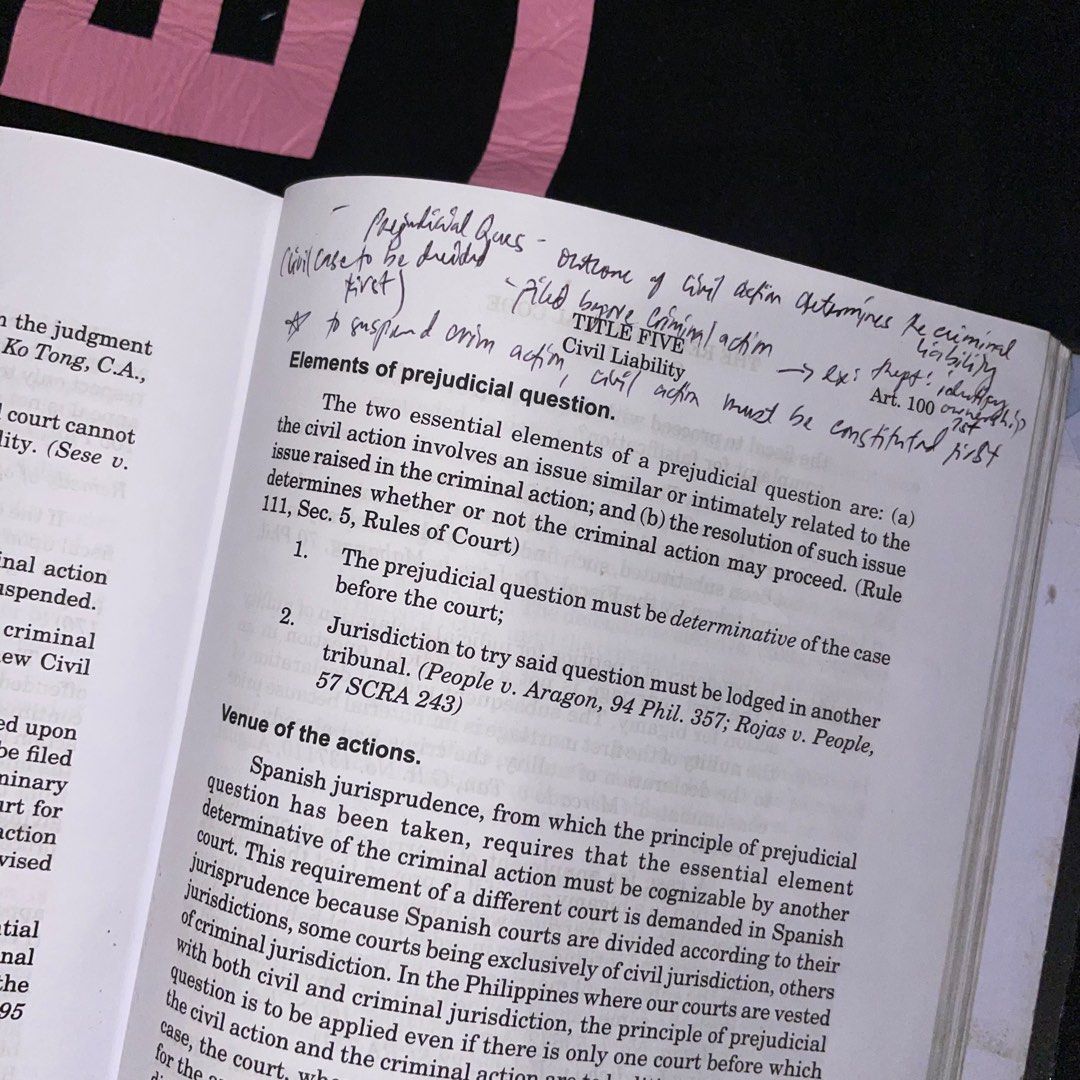 n the judgment
Ko Tong, C.A.,
l court cannot
lity. (Sese v.
inal action
uspended.
criminal
ew Civil
ed upon
be filed
minary
urt for
action
vised
tial
nal
the
95
- Prejudicial Ques - outcome of civil action determines the criminal liability
(civil case to be decided first)
- filed before criminal action
→ ex: theft: identify ownership 1st
☆ to suspend crim action, civil action must be constituted first
TITLE FIVE
Civil Liability
Art. 100
Elements of prejudicial question.
The two essential elements of a prejudicial question are: (a)
the civil action involves an issue similar or intimately related to the
issue raised in the criminal action; and (b) the resolution of such issue
determines whether or not the criminal action may proceed. (Rule
111, Sec. 5, Rules of Court)
1. The prejudicial question must be determinative of the case
before the court;
2. Jurisdiction to try said question must be lodged in another
tribunal. (People v. Aragon, 94 Phil. 357; Rojas v. People,
57 SCRA 243)
Venue of the actions.
Spanish jurisprudence, from which the principle of prejudicial
question has been taken, requires that the essential element
determinative of the criminal action must be cognizable by another
court. This requirement of a different court is demanded in Spanish
jurisprudence because Spanish courts are divided according to their
jurisdictions, some courts being exclusively of civil jurisdiction, others
of criminal jurisdiction. In the Philippines where our courts are vested
with both civil and criminal jurisdiction, the principle of prejudicial
question is to be applied even if there is only one court before which
the civil action and the criminal action are to be
case, the court,
for the